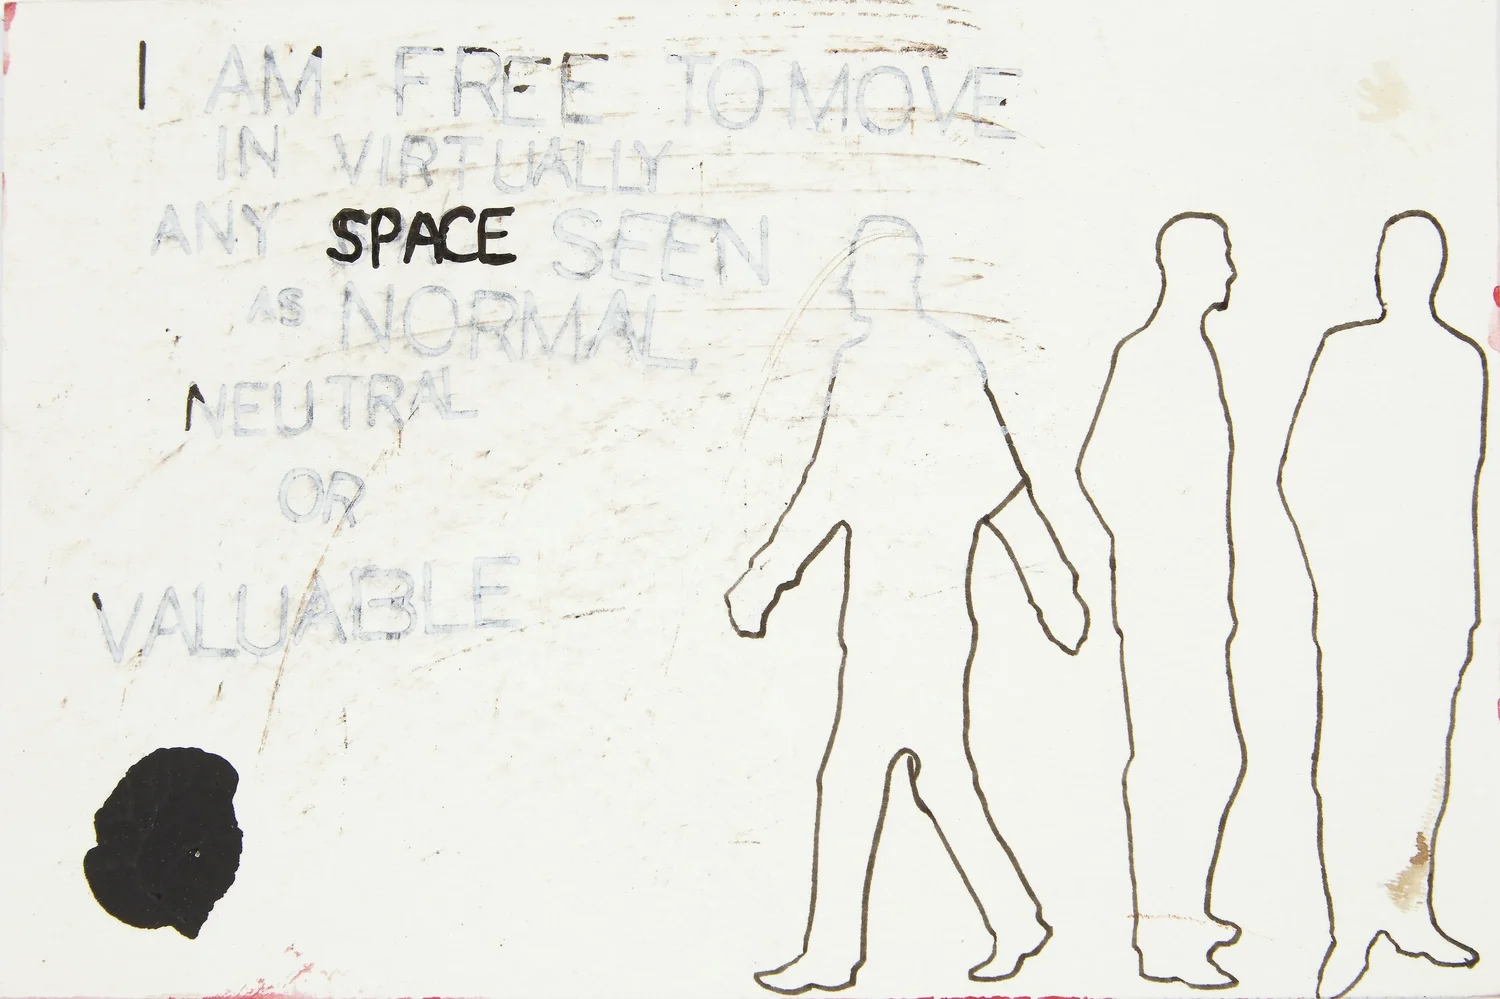 I AM FREE TO MOVE
IN VIRTUALLY
ANY SPACE SEEN
AS NORMAL
NEUTRAL
OR
VALUABLE